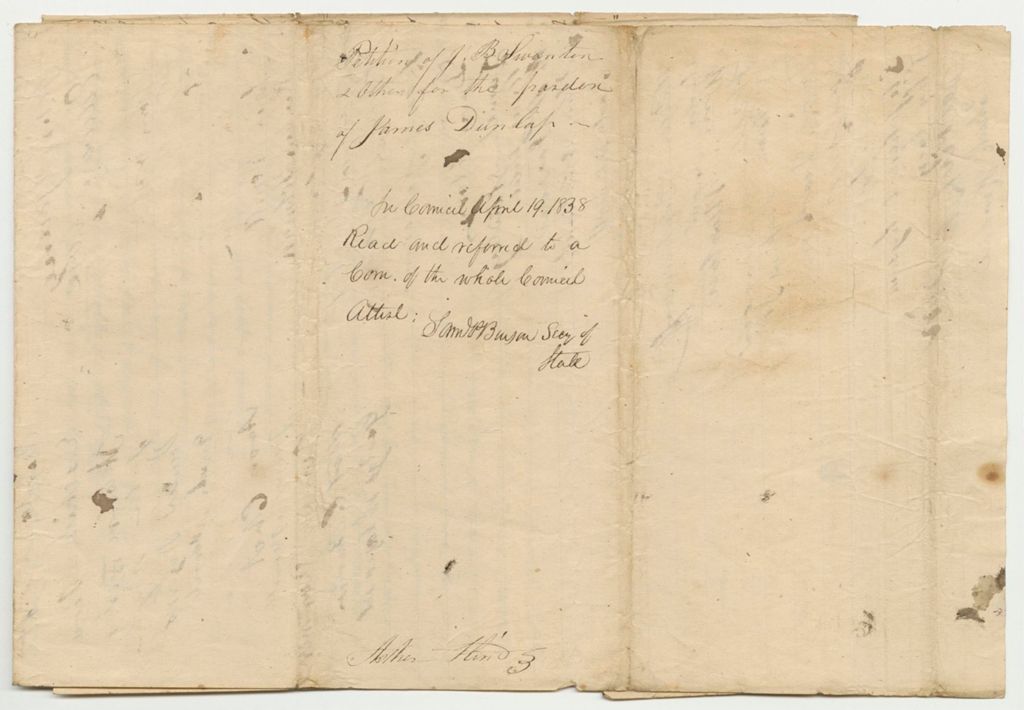 Petition of J. B Swanton
& Others for the pardon
of James Dunlap –
In Council April 19. 1838
Read and referred to a
Com. of the whole Council
Attest:
Saml P Benson Secy of
State